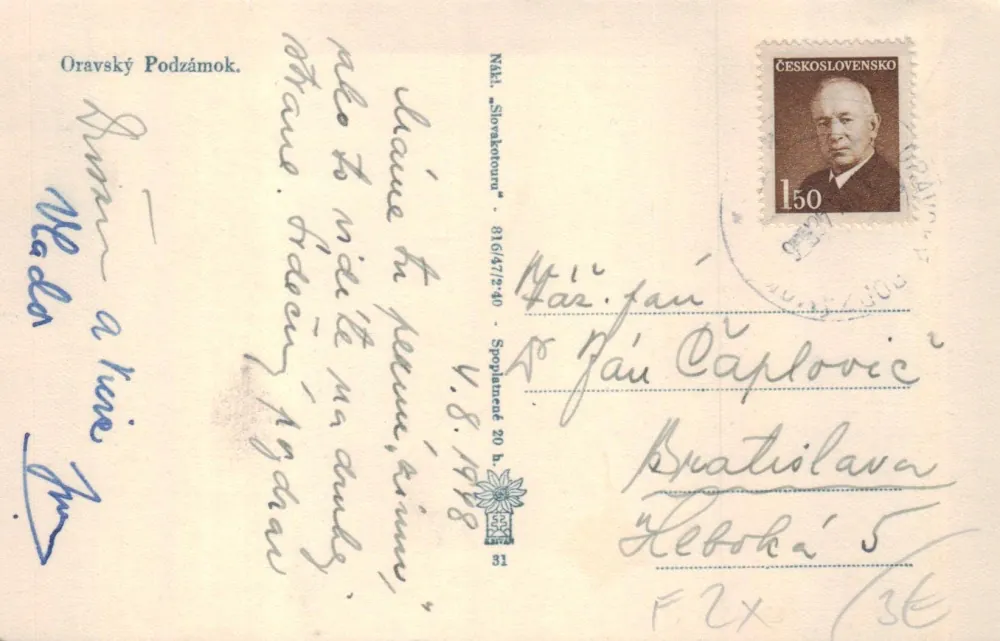 Oravský Podzámok.
4. 8. 1948
Máme tu peknú „zimu",
ako to vidíte na druhej
strane. Srdečný pozdrav
Dušan a Viera
Vlado
Nákl. „Slovakotouru" - 816/47/2'40 - Spoplatnené 20 h.
31
ČESKOSLOVENSKO
1 50
Váž. pán
Dr Ján Čaplovič
Bratislava
Hlboká 5
F 2X
/3€